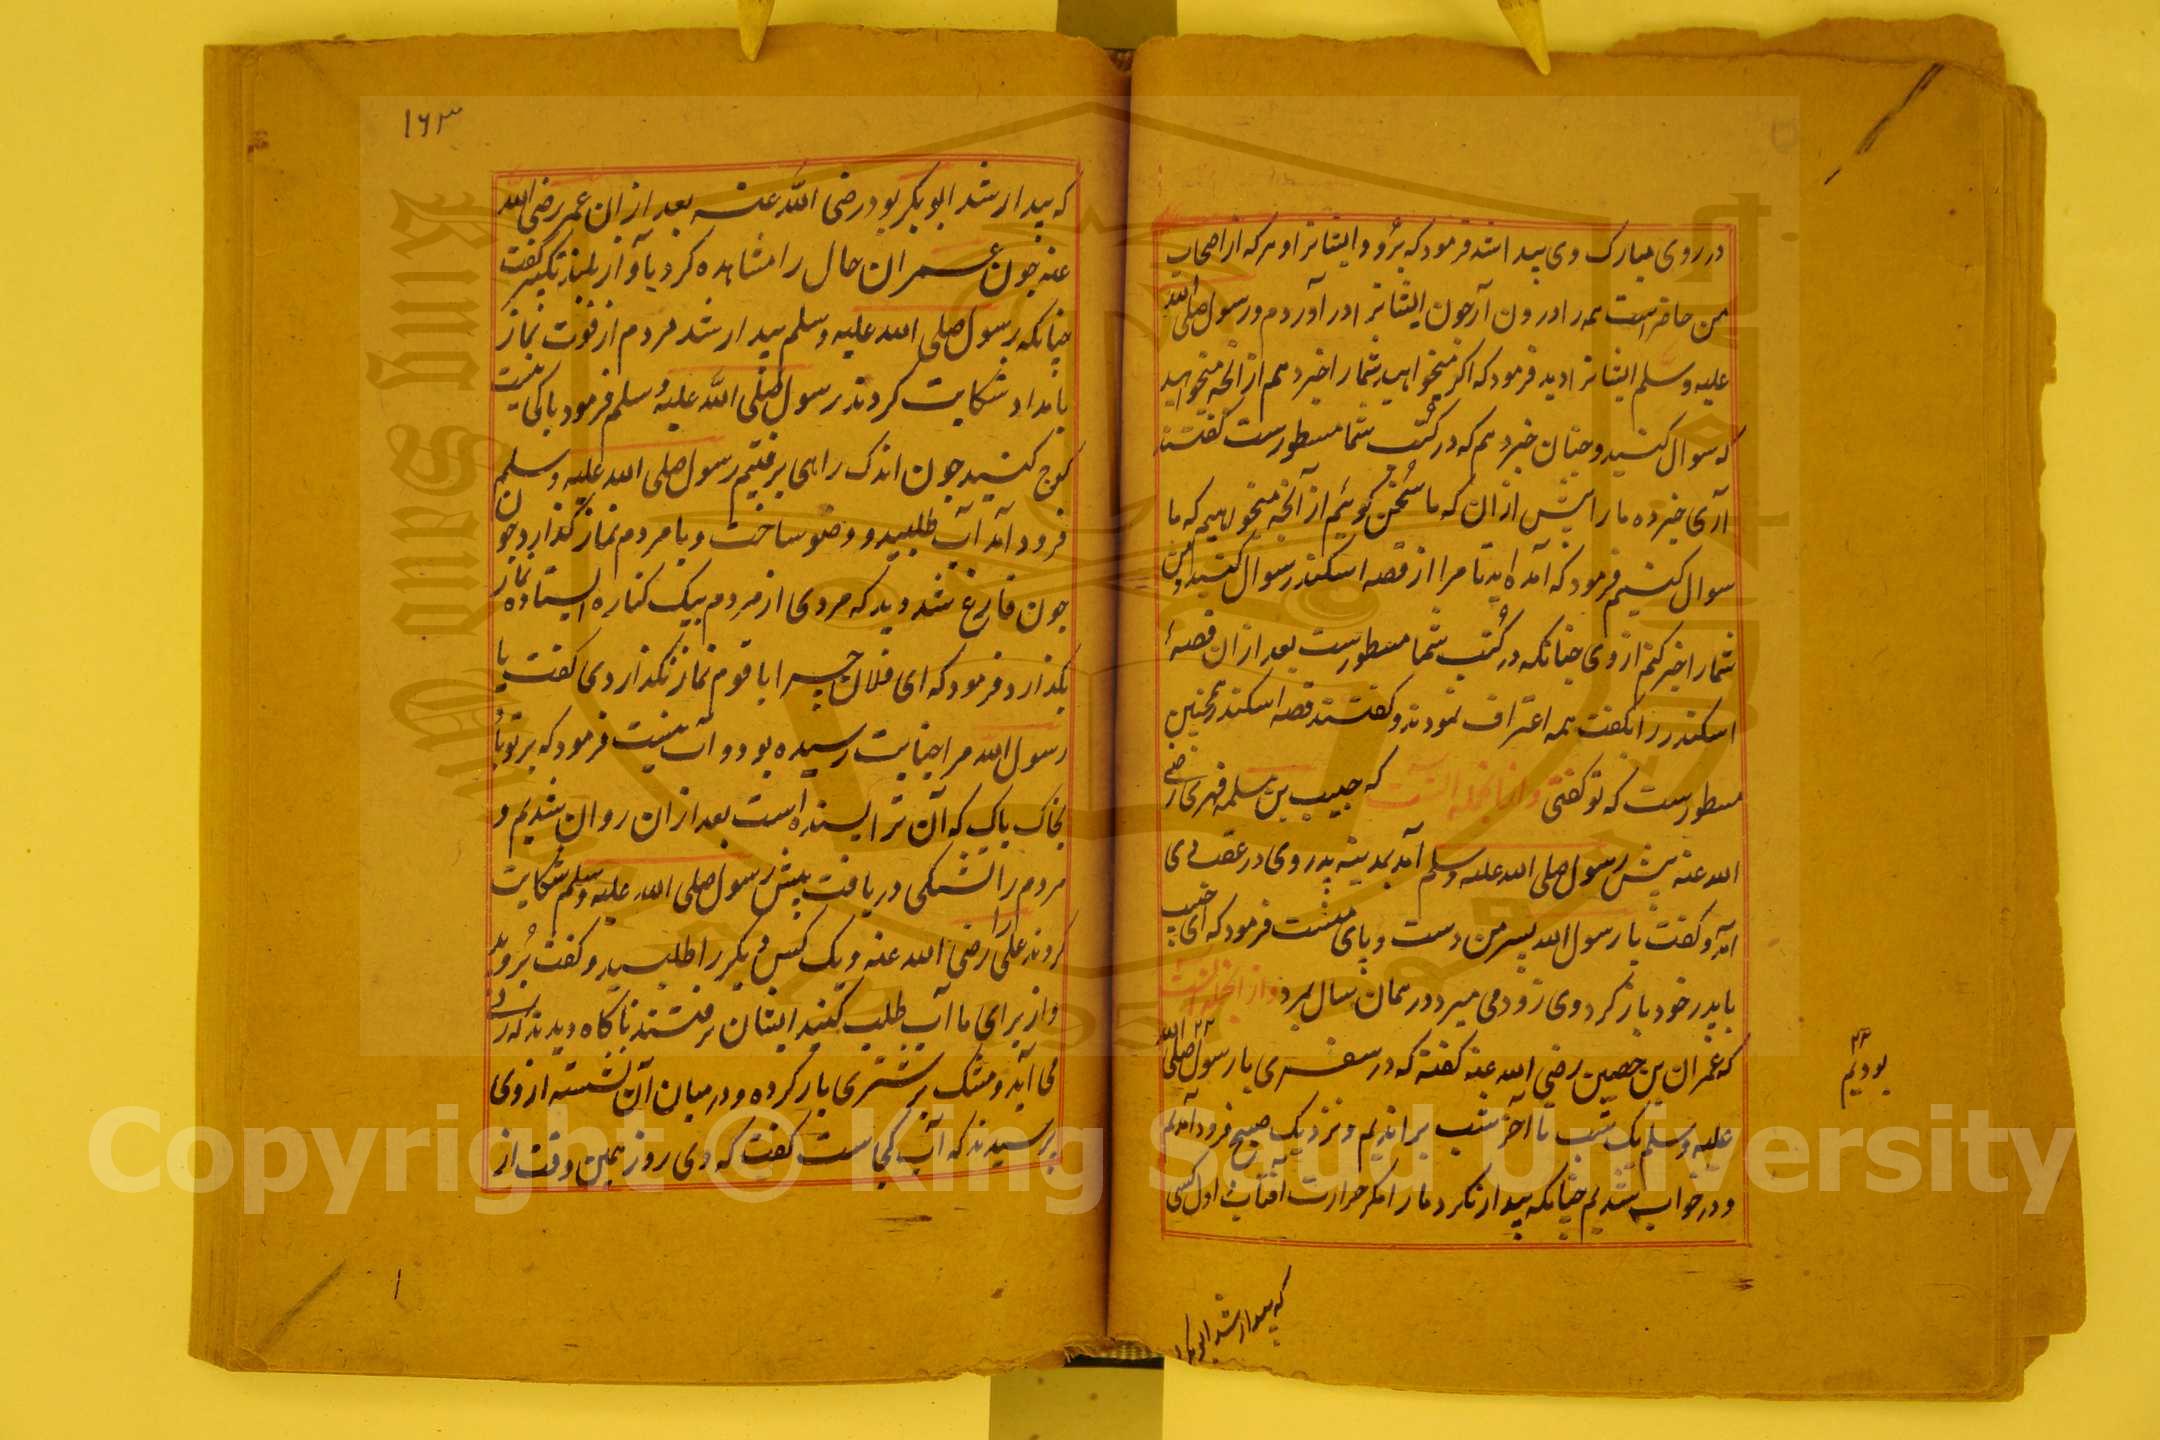 در روی مبارک وی پیدا شد فرمود که برو و ایشانرا و هر که از اصحاب
من حاضر است همه را درون آر چون ایشانرا در آوردم و رسول صلی الله
علیه و سلم ایشانرا دید فرمود که اگر میخواهید شما را خبر دهم از آنچه میخواهید
که سوال کنید و چنان خبر دهم که در کتب شما مسطورست گفتند
آری خبر ده ما را پیش از ان که ما سخن گوئیم از آنچه میخواهیم که ما
سوال کنیم فرمود که آمده اید تا مرا از قصه اسکندر سوال کنید و من
شما را خبر کنم از وی چنانکه در کتب شما مسطورست بعد از ان قصهٔ
اسکندر را بگفت همه اعتراف نمودند و گفتند قصه اسکندر همچنین
مسطورست که تو گفتی و از انجمله آنست که حبیب بن مسلمه فهری رضی
الله عنه پیش رسول صلی الله علیه و سلم آمد بمدینه پدر وی در عقب وی
آمد و گفت یا رسول الله پسر من دست و پای منست فرمود که ای حبیب
با پدر خود باز گرد وی زود می میرد در همان سال بمرد و از انجمله آنست
که عمران بن حصین رضی الله عنه گفته که در سفری با رسول صلی الله
بودیم
علیه و سلم یک شب تا آخر شب براندیم و نزدیک صبح فرود آمدیم
و در خواب شدیم چنانکه بیدار نکرد ما را مگر حرارت آفتاب اول کسی
که بیدار شد ابو بکر
۱۶۳
که بیدار شد ابو بکر بود رضی الله عنه بعد از ان عمر رضی الله
عنه چون عمر ان حال را مشاهده کرد بآواز بلند تکبیر گفت
چنانکه رسول صلی الله علیه و سلم بیدار شد مردم از فوت نماز
بامداد شکایت کردند رسول صلی الله علیه و سلم فرمود باکی نیست
کوچ کنید چون اندک راهی برفتیم رسول صلی الله علیه و سلم
فرود آمد آب طلبید و وضو ساخت و با مردم نماز گذارد چون
چون فارغ شد دید که مردی از مردم بیک کناره ایستاده نماز
نگذارد فرمود که ای فلان چرا با قوم نماز نگذاردی گفت یا
رسول الله مرا جنابت رسیده بود و آب نیست فرمود که بر تو باد
بخاک پاک که آن ترا بسنده است بعد از ان روان شدیم و
مردم را تشنگی دریافت پیش رسول صلی الله علیه و سلم شکایت
کردند علی را رضی الله عنه و یک کس دیگر را طلبید و گفت بروید
و از برای ما آب طلب کنید ایشان برفتند ناگاه دیدند که زنی
می آید و مشک بر شتری بار کرده و در میان آن نشسته از وی
پرسیدند که آب کجاست گفت که دی روز همین وقت از
Copyright © King Saud University
King Saud University